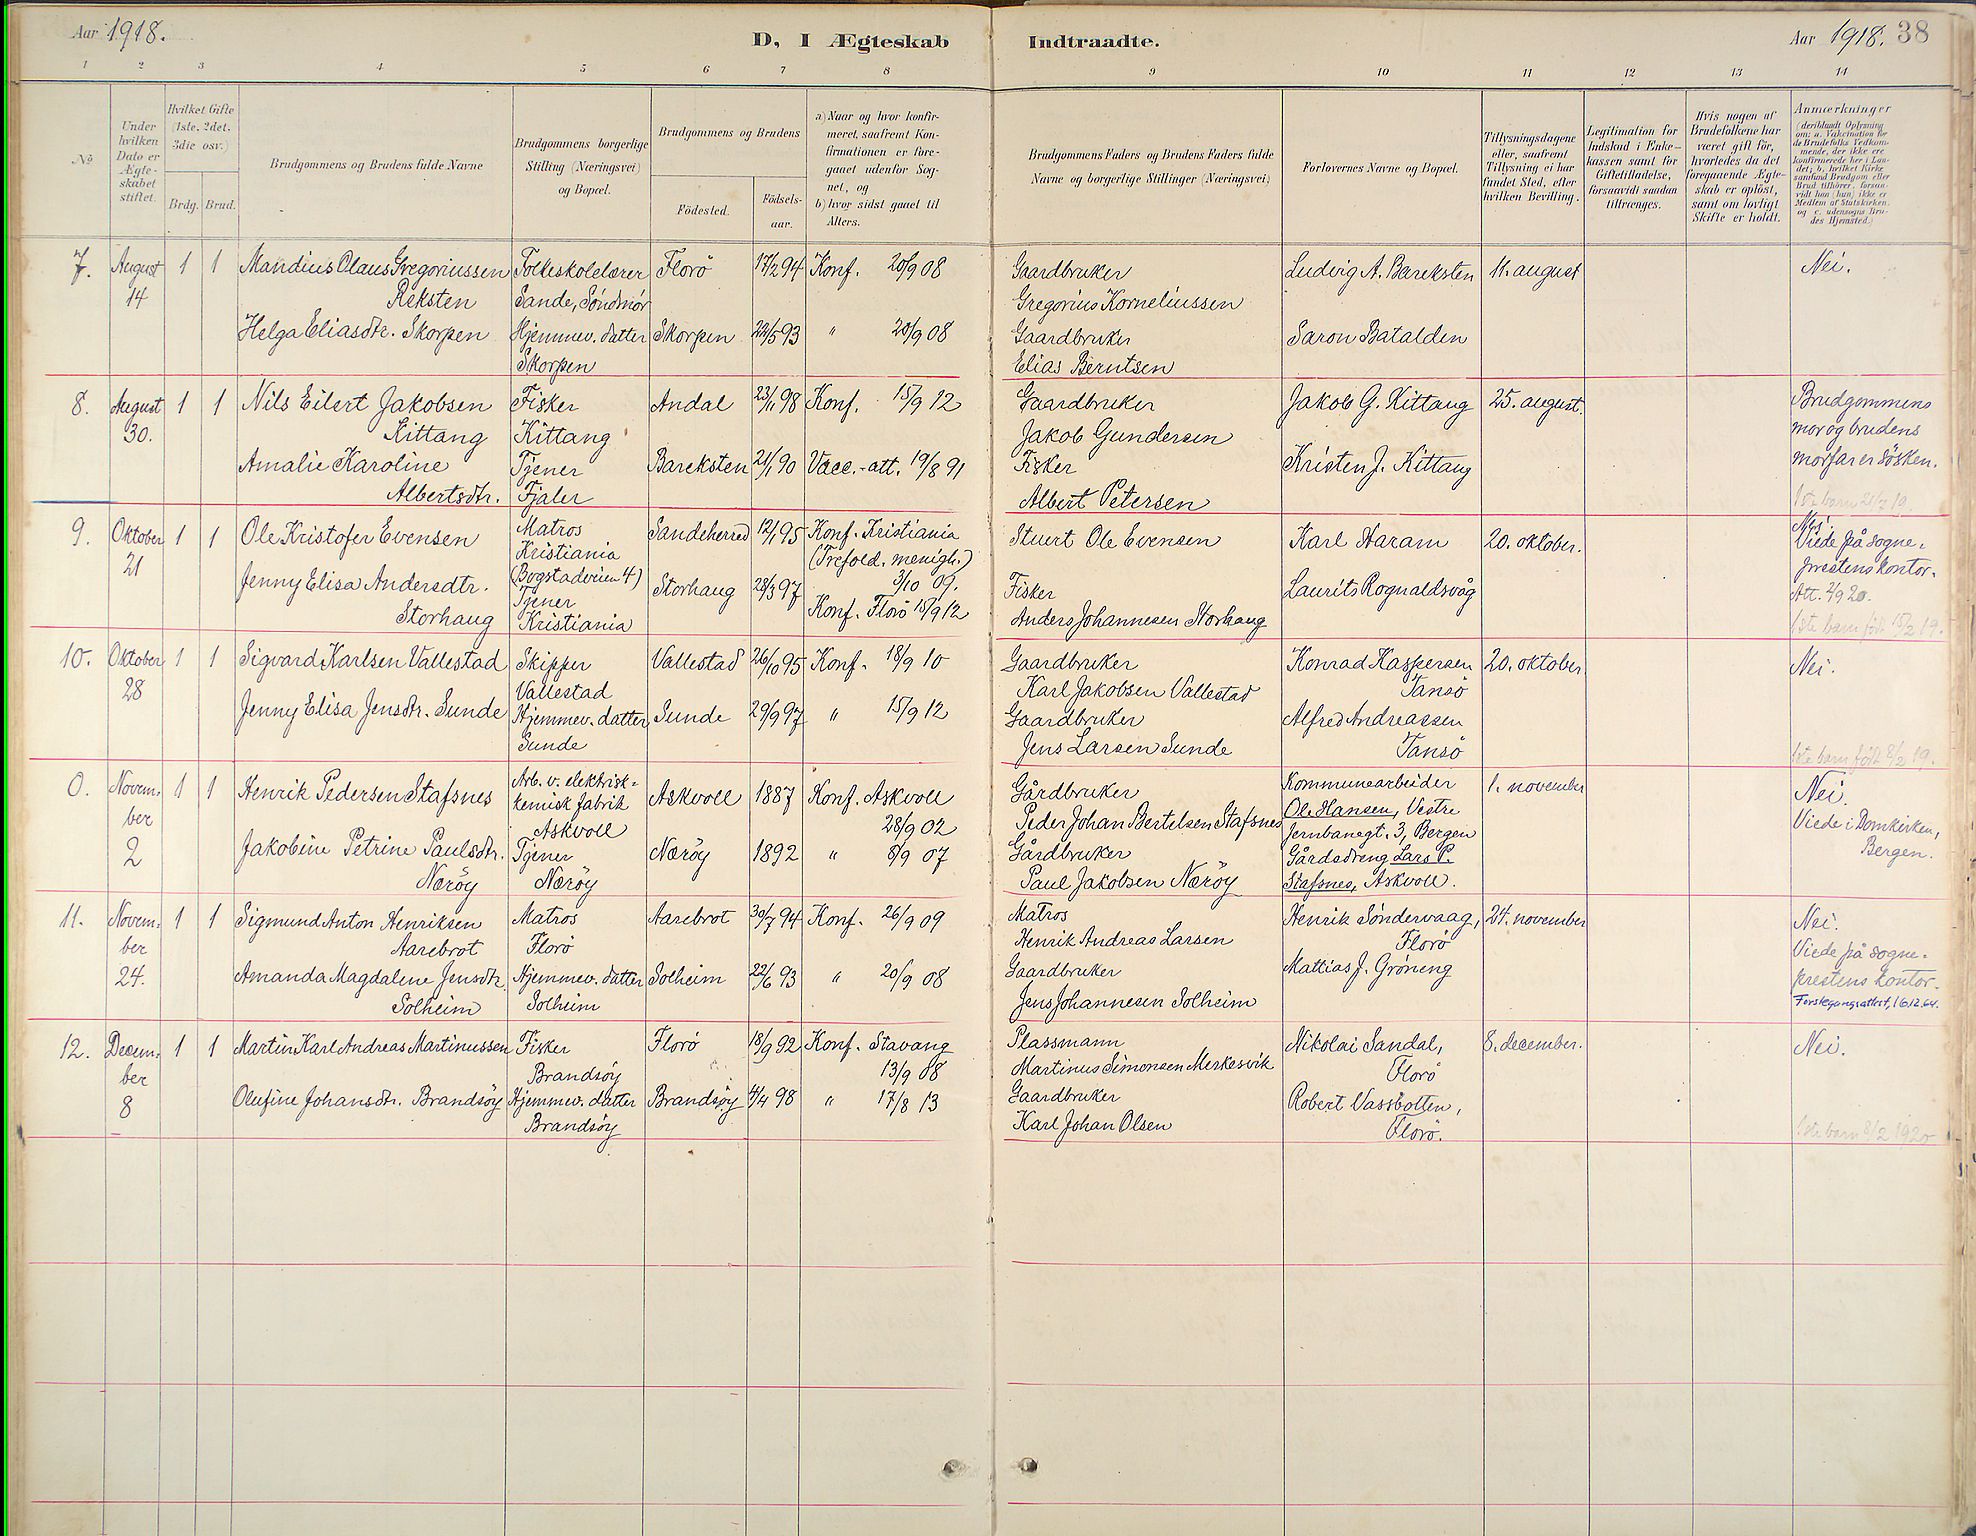 Aar 1918.
D, I Ægteskab
Indtraadte.
Aar 1918.
38
1 2 3 4 5 6 7 8 9 10 11 12 13 14
No
Under hvilken Dato er Ægteskabet stiftet.
Hvilket Gifte (1ste, 2det, 3die osv.)
Brdg. Brud.
Brudgommens og Brudens fulde Navne
Brudgommens borgerlige Stilling (Næringsvei) og Bopæl.
Brudgommens og Brudens
Födested.
Födselsaar.
a) Naar og hvor konfirmeret, saafremt Konfirmationen er foregaaet udenfor Sognet, og
b) hvor sidst gaaet til Alters.
Brudgommens Faders og Brudens Faders fulde Navne og borgerlige Stillinger (Næringsvei)
Forlovernes Navne og Bopæl.
Tillysningsdagene eller, saafremt Tillysning ei har fundet Sted, efter hvilken Bevilling.
Legitimation for Indskud i Enkekassen samt for Giftetilladelse, forsaavidt saadan tiltrænges.
Hvis nogen af Brudefolkene har været gift för, hvorledes da det foregaaende Ægteskab er oplöst, samt om lovligt Skifte er holdt.
Anmærkninger
(deriblandt Oplysning om: a. Vakcination for de Brudefolks Vedkommende, der ikke ere konfirmerede her i Landet; b. hvilket Kirkesamfund Brudgom eller Brud tilhörer, forsaavidt han (hun) ikke er Medlem af Statskirken, og c. udensogns Brudes Hjemsted.)
7. August 14 1 1
Mandius Olaus Gregoriussen Reksten
Folkeskolelærer Sande, Söndmör
Florö 17/2 94 Konf. 20/9 08
Gaardbruker Gregorius Korneliussen
Ludvig A. Bareksten
11. august
Nei.
Helga Eliasdtr. Skorpen
Hjemmev. datter Skorpen
Skorpen 22/5 93 " 20/9 08
Gaardbruker Elias Berntsen
Saron Batalden
8. August 30. 1 1
Nils Eilert Jakobsen Kittang
Fisker Kittang
Andal 23/11 98 Konf. 15/9 12
Gaardbruker Jakob Gundersen
Jakob G. Kittang
25. august.
Brudgommens mor og brudens morfar er sösken.
Amalie Karoline Albertsdtr.
Tjener Fjaler
Bareksten 21/1 90 Vacc.-att. 19/8 91
Fisker Albert Petersen
Kristen J. Kittang
1ste barn 21/2 19.
9. Oktober 21 1 1
Ole Kristofer Evensen
Matros Kristiania (Bogstadveien 4)
Sandeherred 12/1 95 Konf. Kristiania (Trefold. menigh.) 3/10 09.
Stuert Ole Evensen
Karl Haram
20. oktober.
Nei.
Viede på sogneprestens kontor.
Att. 4/9 20.
Jenny Elisa Andersdtr. Storhaug
Tjener Kristiania
Storhaug 28/3 97 Konf. Florö 15/9 12
Fisker Anders Johannesen Storhaug
Laurits Rognaldsvåg
1ste barn födt 15/2 19.
10. Oktober 28 1 1
Sigvard Karlsen Vallestad
Skipper Vallestad
Vallestad 26/10 95 Konf. 18/9 10
Gaardbruker Karl Jakobsen Vallestad
Konrad Kaspersen Tansö
20. oktober
Nei.
Jenny Elisa Jensdtr. Sunde
Hjemmev. datter Sunde
Sunde 29/9 97 " 15/9 12
Gaardbruker Jens Larsen Sunde
Alfred Andreassen Tansö
1ste barn födt 8/2 19.
0. November 2 1 1
Henrik Pedersen Stafsnes
Arb. v. elektriskkemisk fabrik Askvoll
Askvoll 1887 Konf. Askvoll 28/9 02
Gårdbruker Peder Johan Bertelsen Stafsnes
Kommunearbeider Ole Hansen, Vestre Jernbanegt. 3, Bergen
1. november
Nei.
Viede i Domkirken, Bergen.
Jakobine Petrine Paulsdtr. Næröy
Tjener Næröy
Næröy 1892 " 8/9 07
Gårdbruker Paul Jakobsen Næröy
Gårdsdreng Lars P. Stafsnes, Askvoll.
11. November 24. 1 1
Sigmund Anton Henriksen Aarebrot
Matros Florö
Aarebrot 30/7 94 Konf. 26/9 09
Matros Henrik Andreas Larsen
Henrik Söndervaag, Florö
24. november
Nei.
Viede på sogneprestens kontor.
Forslegungsattest, 16.12.64.
Amanda Magdalene Jensdtr. Solheim
Hjemmev. datter Solheim
Solheim 22/6 93 " 20/9 08
Gaardbruker Jens Johannesen Solheim
Mattias J. Gröneng
12. December 8 1 1
Martin Karl Andreas Martinussen
Fisker Brandsöy
Florö 18/9 92 Konf. Stavang 13/9 08
Plassmann Martinus Simonsen Merkesvik
Nikolai Sandal, Florö
8. december.
Nei.
Olufine Johansdtr. Brandsöy
Hjemmev. datter Brandsöy
Brandsöy 4/4 98 " 17/8 13
Gaardbruker Karl Johan Olsen
Robert Vassbotten, Florö.
1ste barn 8/2 1920